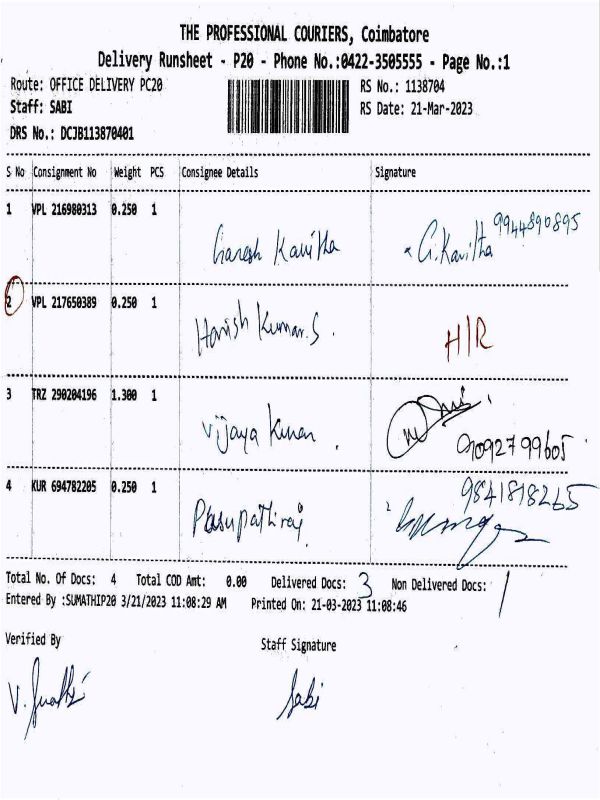 THE PROFESSIONAL COURIERS, Coimbatore
Delivery Runsheet - P20 - Phone No.:0422-3505555 - Page No.:1
Route: OFFICE DELIVERY PC20
RS No.: 1138704
Staff: SABI
RS Date: 21-Mar-2023
DRS No.: DCJB113870401
S No Consignment No Weight PCS Consignee Details Signature
1 VPL 216980313 0.250 1 Ganesh Kavitha G.Kavitha 9944890895
2 VPL 217650389 0.250 1 Harish Kumar.S. H/R
3 TRZ 290204196 1.300 1 Vijaya Kumar 9092799605
4 KUR 694782205 0.250 1 Pasupathiraj 9841818265
Total No. Of Docs: 4 Total COD Amt: 0.00 Delivered Docs: 3 Non Delivered Docs: 1
Entered By :SUMATHIP20 3/21/2023 11:08:29 AM Printed On: 21-03-2023 11:08:46
Verified By Staff Signature
Sabi